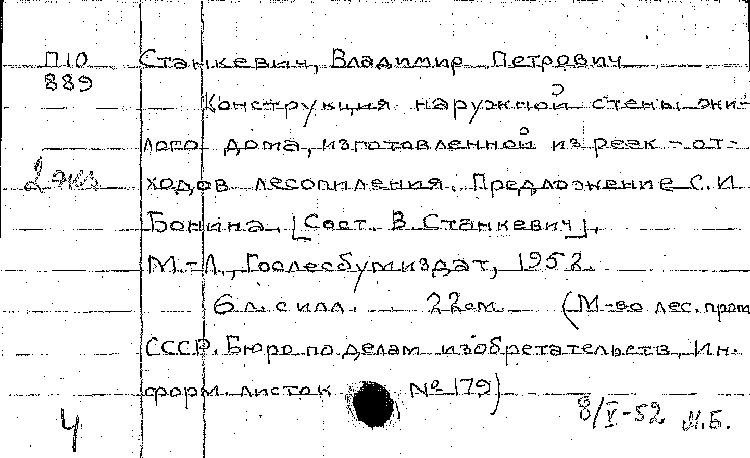 П10
889
Станкевич, Владимир Петрович
Конструкция наружной стены жи-
лого дома, изготовленной из реек - от-
2 экз
ходов лесопиления. Предложение С.И.
Бонина. [Сост. В. Станкевич].
М.-Л., Гослесбумиздат, 1952.
6 л. с илл. 22 см. (М-во лес. пром
СССР. Бюро по делам изобретательств. Ин-
форм. листок № 179)
8/V-52 М.Б.
Ч